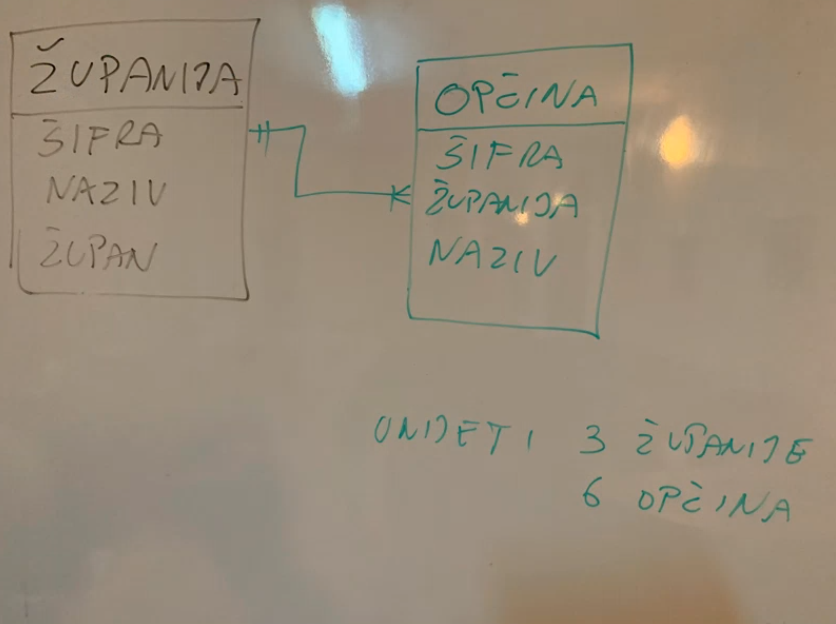 ŽUPANIJA
ŠIFRA
NAZIV
ŽUPAN
OPČINA
ŠIFRA
ŽUPANIJA
NAZIV
UNIJETI 3 ŽUPANIJE
6 OPČINA